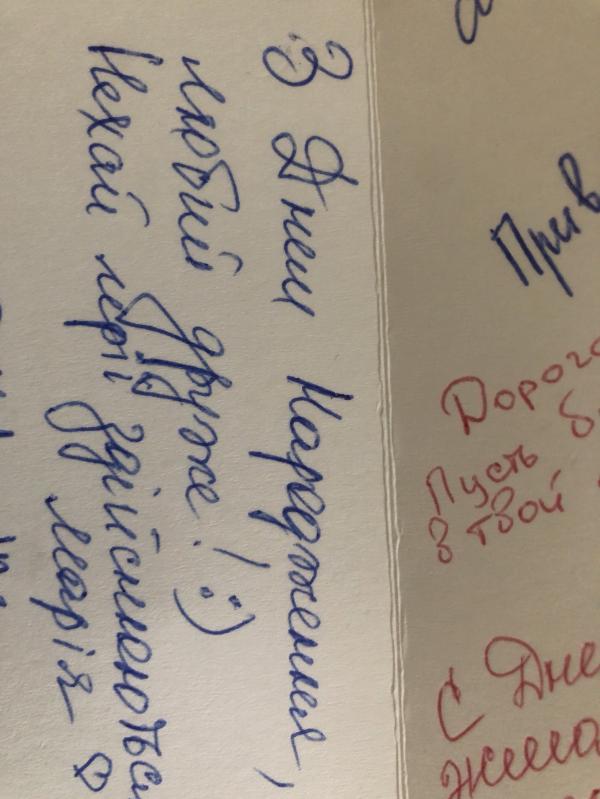 З Днем Народження,
любий друже! :)
Нехай мрії здійснюються
Марія ♡
Прив
Дорого
Пусть б
в твой
С Дне